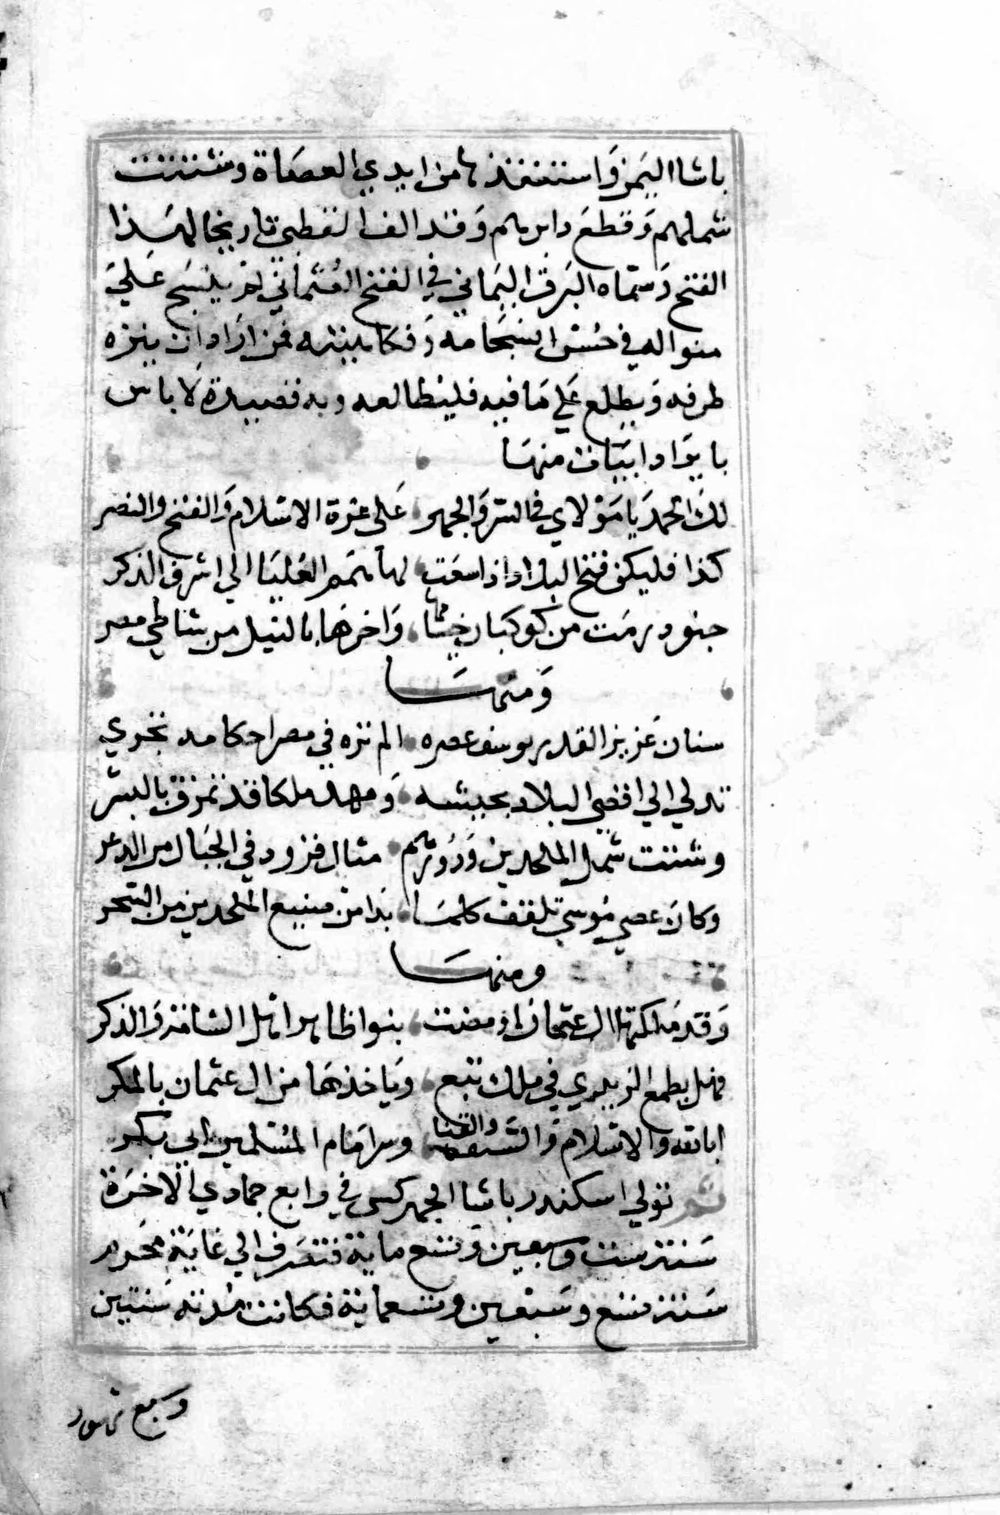 باشا اليمن واستنقذها من ايدي العصاة وشتت
شملهم وقطع دابرهم وقد الف القطبي تاريخا لهذا
الفتح وسماه البرق اليماني في الفتح العثماني لم ينسج علي
منواله في حسن انسجامه وفكاهيته فمن اراد ان ينزه
طرفه ويطلع علي ما فيه فليطالعه وبه قصيدة لا باس
بايراد ابيات منها
لك الحمد يا مولاي في السر والجهر على عزة الاسلام والفتح والنصر
كذا فليكن فتح البلاد اذا سعت لها الهمم العليا الي اشرف الذكر
جنود رمت من كوكبان خيامها واخرها بالنيل من شاطي مصر
ومنها
سنان عزيز القدر يوسف عصره الم تره في مصر احكامه تجري
تدلي الي اقصي البلاد بجيشه ومهد ملكا قد تمزق بالشر
وشتت شمل الملحدين وردهم مثال قرود في الجبال من الذعر
وكان عصي موسي تلقف كلما بدا من صنيع الملحدين من السحر
ومنها
وقد ملكتها ال عثمان اذ مضت بنوا طاهر اهل الشامة والذكر
فهل يطمع الزيدي في ملك تبع وياخذها من ال عثمان بالمكر
ابا الله والاسلام والسيف والقنا وسر امام المسلمين ابي بكر
ثم تولي اسكندر باشا الجهركس في رابع جمادي الاخرة
سنة ست وسبعين وتسع ماية فتصرف الي غاية محرم
سنة تسع وسبعين وتسعماية فكانت مدته سنتين
وسبع شهور